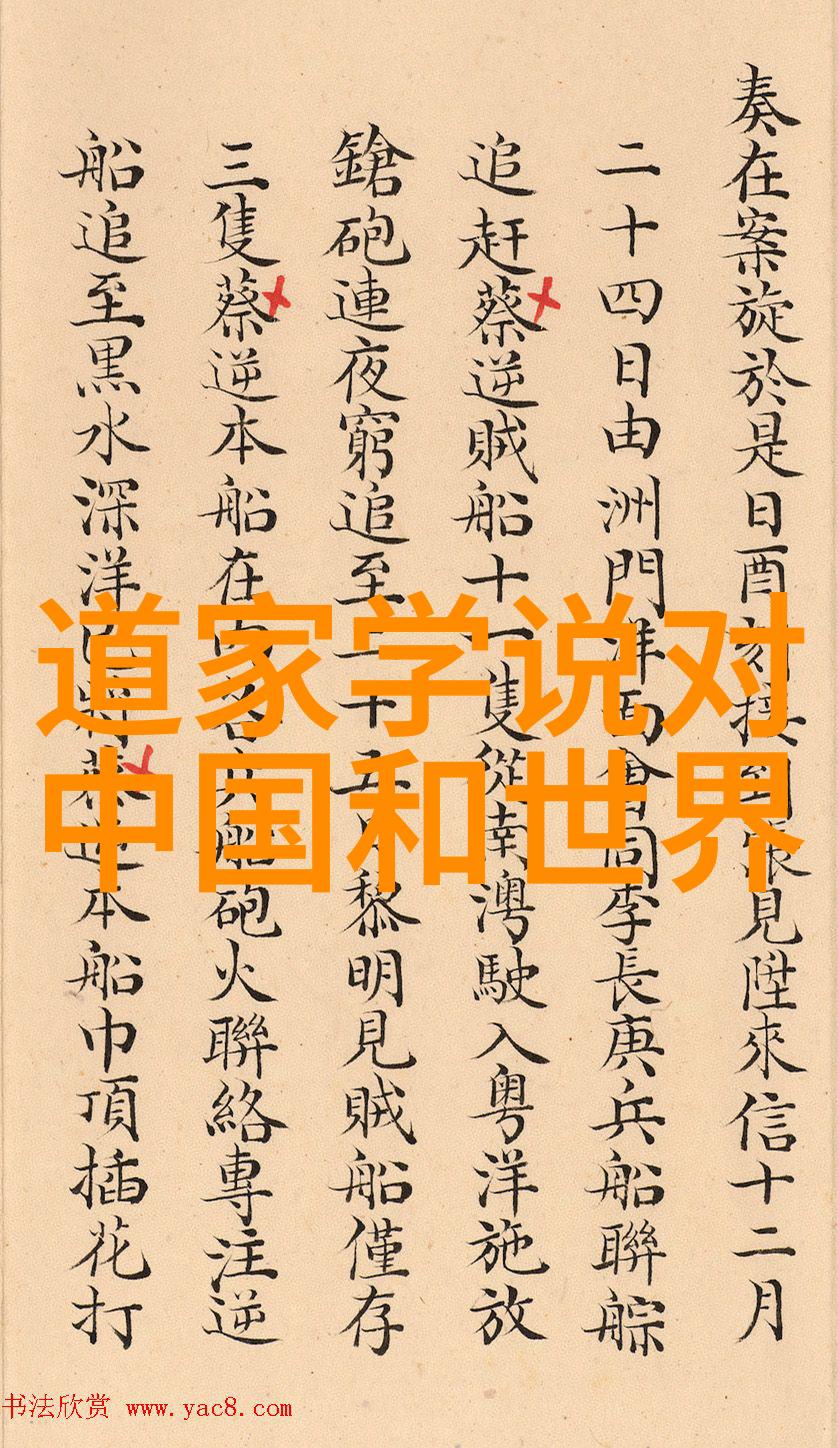 奏在案旋於是日酉刻接到張見陞來信十二月
二十四日由洲門洋面會同李長庚兵船聯䑸
追赶蔡逆賊船十一隻從南澳駛入粵洋施放
鎗砲連夜窮追至二十五日黎明見賊船僅存
三隻蔡逆本船在內各兵船砲火聯絡專注逆
船追至黒水深洋已將蔡逆本船巾頂插花打
道家学说对
中国和世界
书法欣赏 www.yac8.com